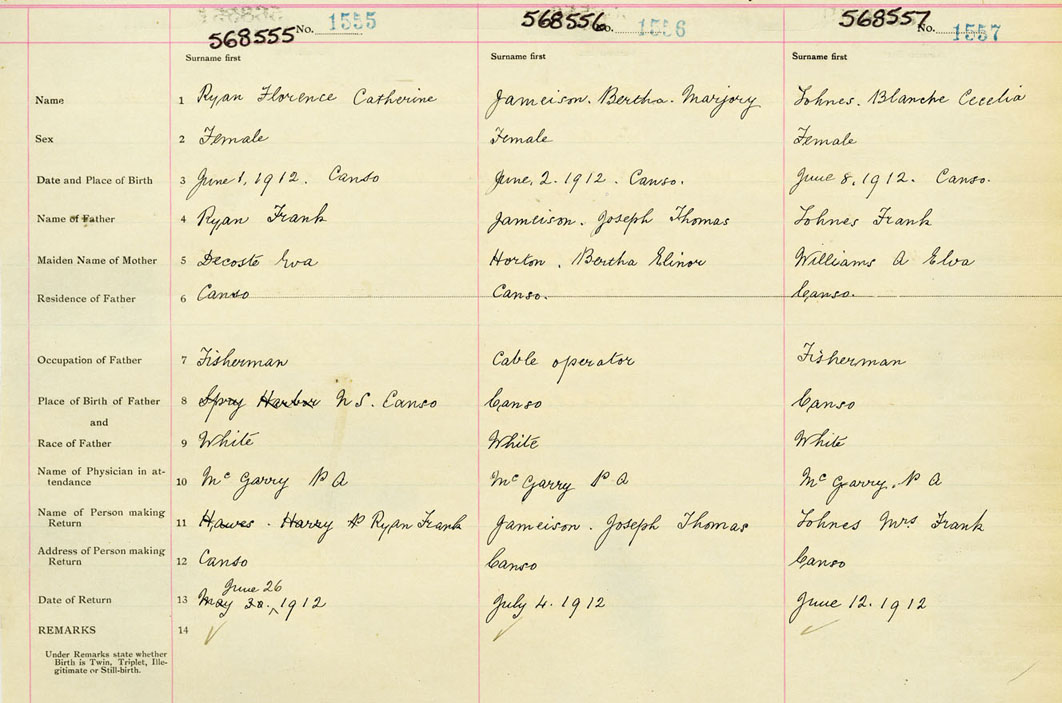 568555 No. 1555 568556 No. 1556 568557 No. 1557
Surname first Surname first Surname first
Name 1 Ryan Florence Catherine Jameison. Bertha. Marjory Lohnes. Blanche Cecelia
Sex 2 Female Female Female
Date and Place of Birth 3 June 1, 1912. Canso June, 2. 1912. Canso. June 8, 1912. Canso.
Name of Father 4 Ryan Frank Jameison. Joseph Thomas Lohnes Frank
Maiden Name of Mother 5 Decoste Eva Horton, Bertha Elinor Williams A Elva
Residence of Father 6 Canso Canso. Canso.
Occupation of Father 7 Fisherman Cable operator Fisherman
Place of Birth of Father 8 Spry Harbor N S. Canso Canso Canso
and
Race of Father 9 White White White
Name of Physician in at-
tendance 10 Mc Garry P A Mc Garry P A Mc Garry, P A
Name of Person making
Return 11 Hawes. Harry P Ryan Frank Jameison. Joseph Thomas Lohnes Mrs Frank
Address of Person making
Return 12 Canso Canso Canso
June 26
Date of Return 13 May 30. 1912 July 4. 1912 June 12. 1912
REMARKS 14
Under Remarks state whether
Birth is Twin, Triplet, Ille-
gitimate or Still-birth.